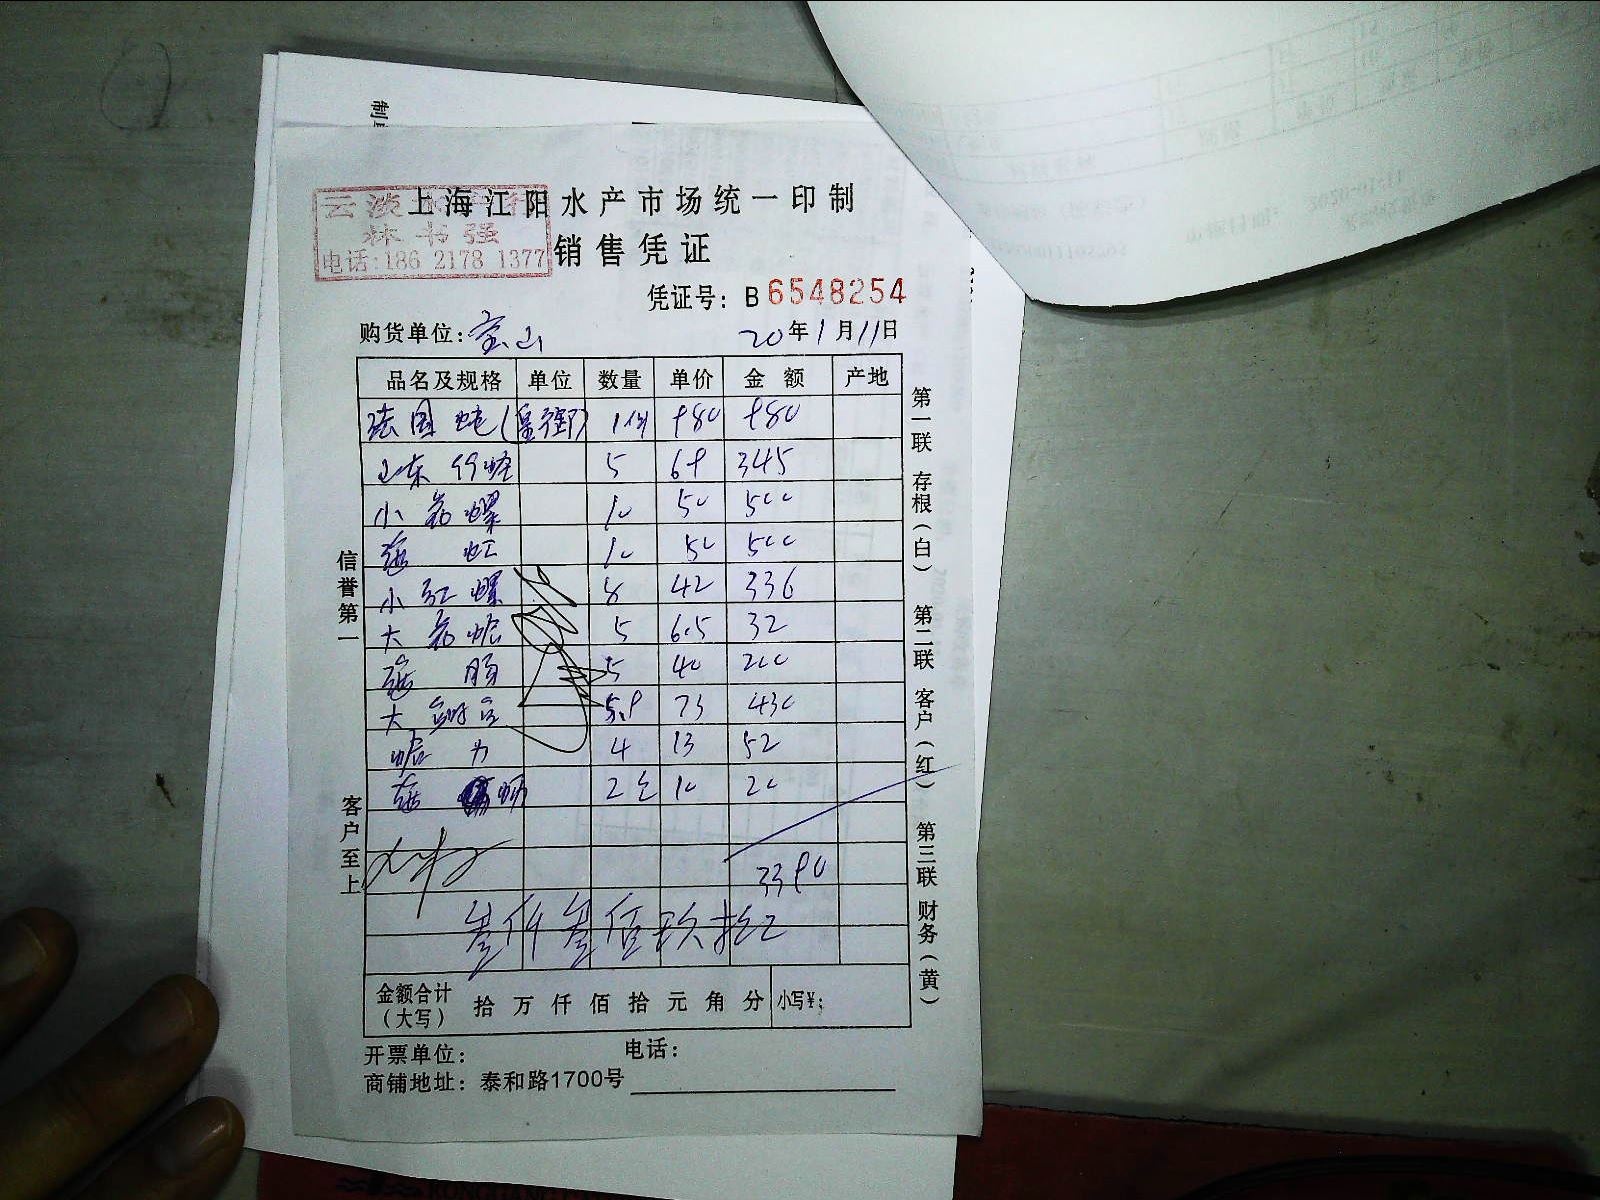 上海江阳水产市场统一印制
云淡
林书强
电话:186 2178 1377
销售凭证
凭证号: B 6548254
购货单位: 宝山 20年1月11日
品名及规格 单位 数量 单价 金额 产地
法国蚝(皇御) 1件 980 980
山东竹蛏 5 69 345
小花螺 10 50 500
10 50 500
小红螺 8 42 336
大花蛤 5 6.5 32
肠 5 40 200
大 5.9 73 430
蛤 4 13 52
2 10 20
3390
叁仟叁佰玖拾
金额合计(大写) 拾 万 仟 佰 拾 元 角 分 小写¥:
开票单位: 电话:
商铺地址: 泰和路1700号
信誉第一
客户至上
第一联 存根(白) 第二联 客户(红) 第三联 财务(黄)